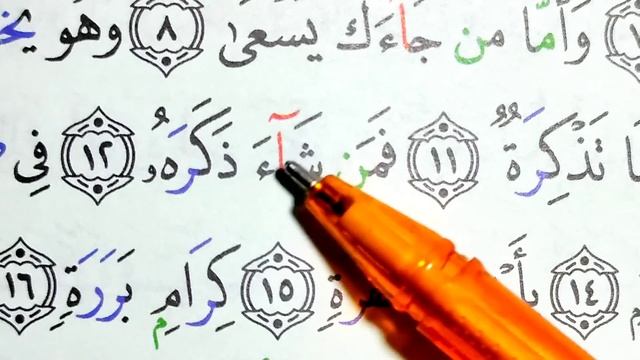 وَأَمَّا مَن جَآءَكَ يَسْعَىٰ ٨ وَهُوَ
تَذْكِرَةٌ ١١ فَمَن شَآءَ ذَكَرَهُۥ ١٢ فِى
١٤ ١٥ كِرَامٍۭ بَرَرَةٍ ١٦